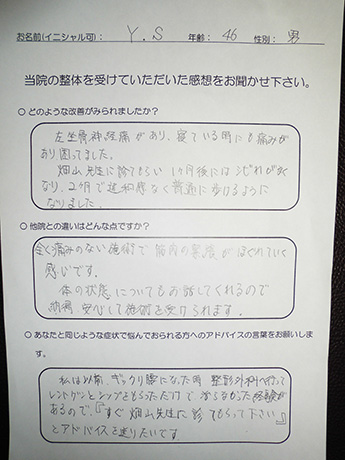 お名前(イニシャル可): Y.S 年齢: 46 性別: 男
当院の整体を受けていただいた感想をお聞かせ下さい。
○ どのような改善がみられましたか？
左坐骨神経痛があり、寝ている時にも痛みが
あり困ってました。
畑山先生に診てもらい 1ヶ月後にはシビレがなく
なり、2ヶ月で違和感なく普通に歩けるように
なりました。
○ 他院との違いはどんな点ですか？
全く痛みのない施術で筋肉の緊張がほぐれていく
感じです。
体の状態についてもお話してくれるので
納得、安心して施術を受けられます。
○ あなたと同じような症状で悩んでおられる方へのアドバイスの言葉をお願いしま
す。
私は以前、ぎっくり腰になった時 整形外科へ行って
レントゲンとシップをもらっただけで 治らなかった経験が
あるので、『すぐ 畑山先生に診てもらって下さい』
とアドバイスを送りたいです。